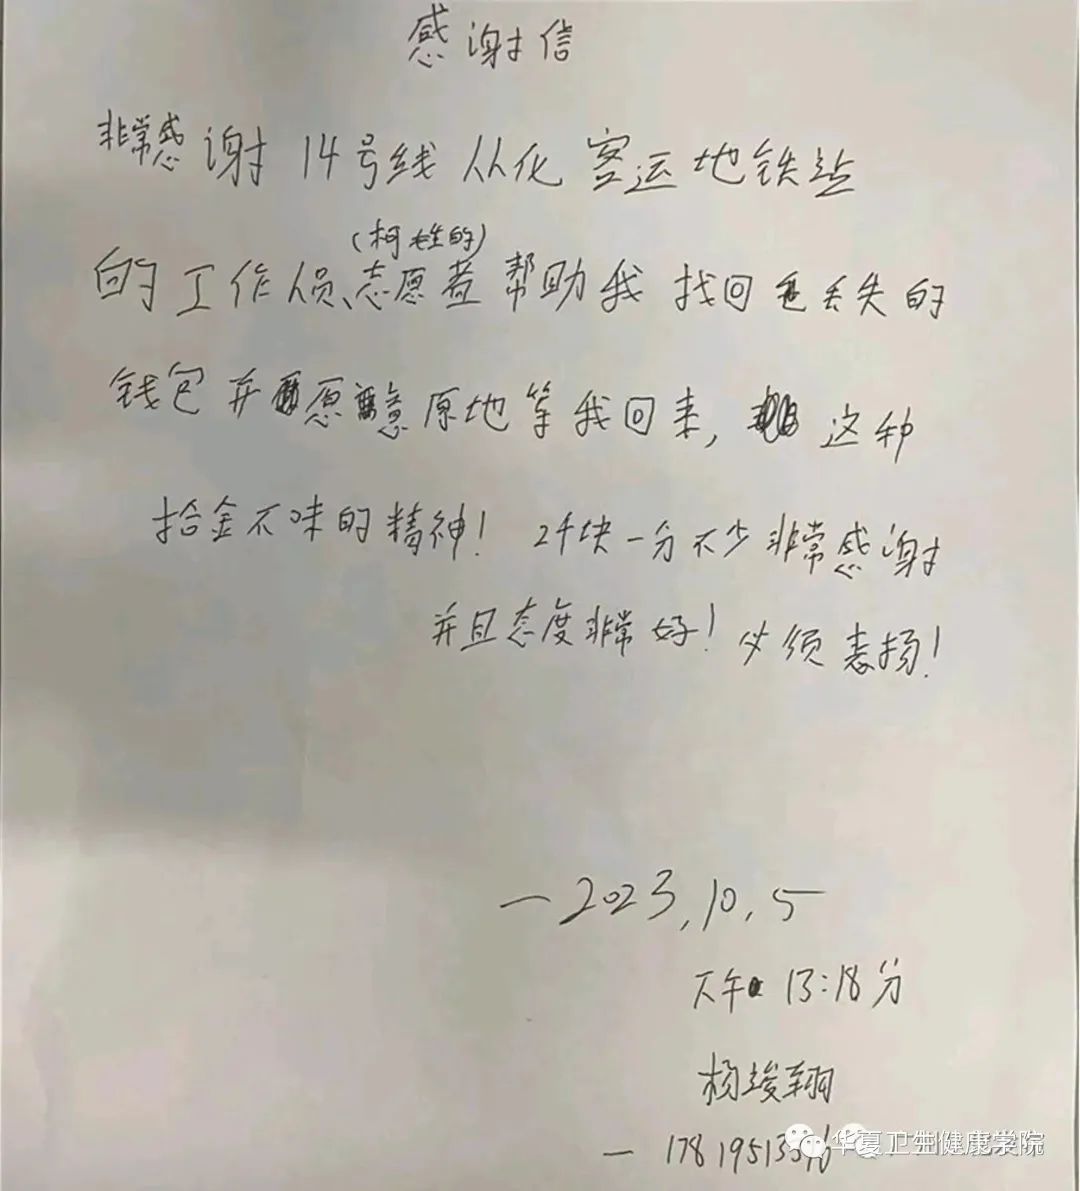 感谢信
非常感谢14号线从化客运地铁站
(柯姓的)
的工作人员、志愿者帮助我找回丢失的
钱包并愿意原地等我回来,这种
拾金不味的精神!2千块一分不少非常感谢
并且态度非常好!必须表扬!
—2023.10.5
下午13:18分
杨竣翔
华夏卫生健康学院